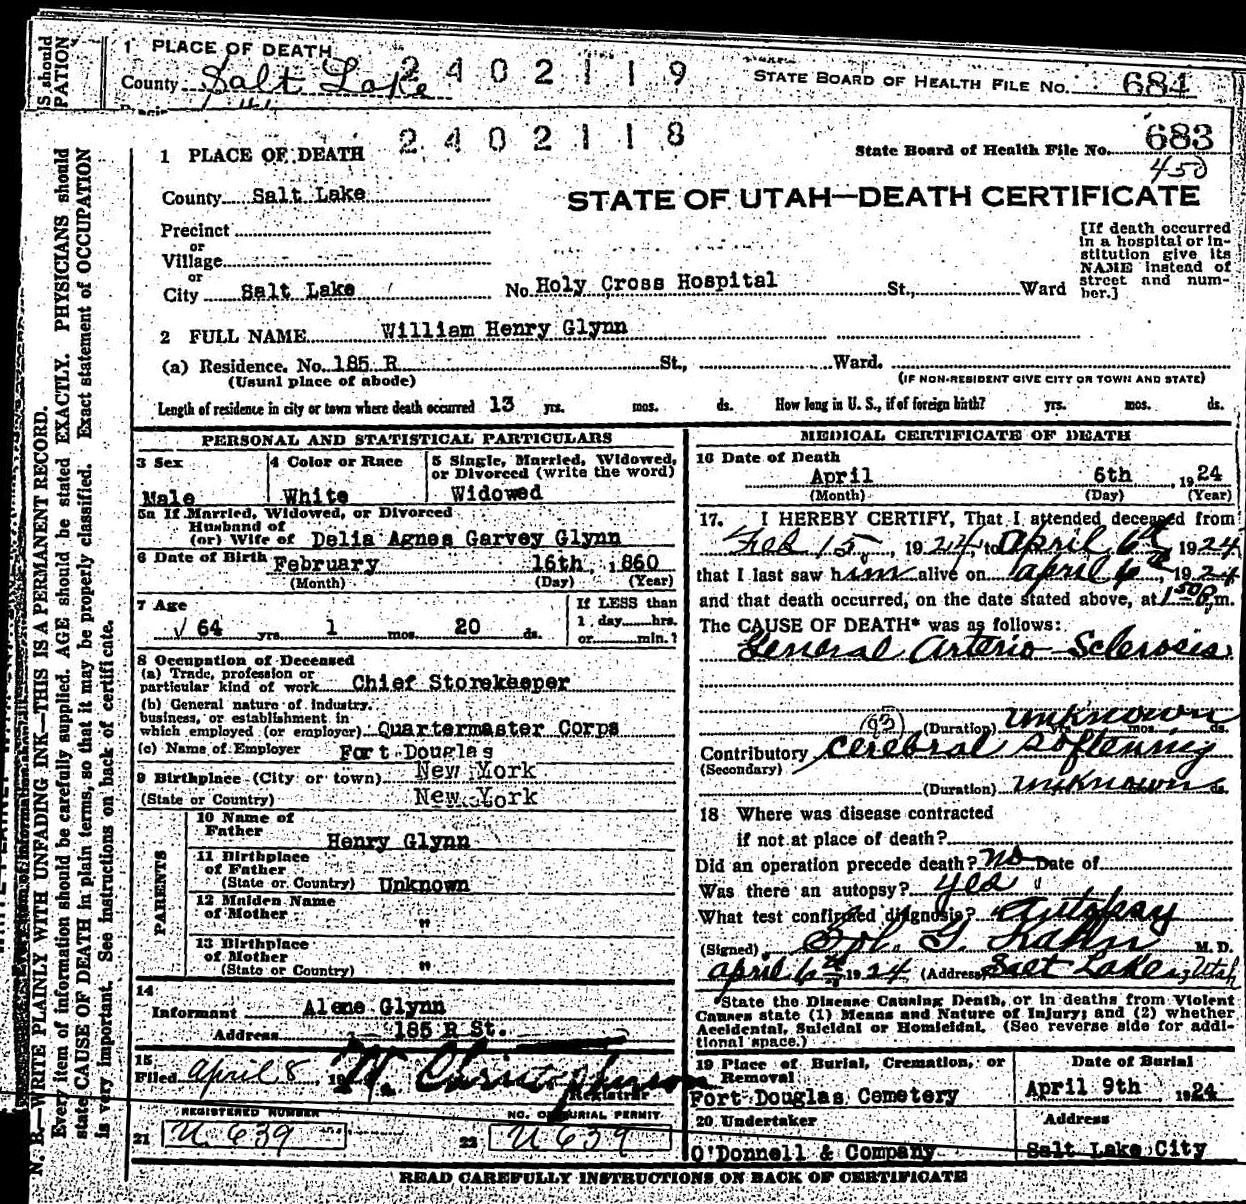 S should
PATION
1 PLACE OF DEATH
2402119
County Salt Lake
STATE BOARD OF HEALTH FILE No. 684
2402118
683
1 PLACE OF DEATH
State Board of Health File No.
450
County Salt Lake
STATE OF UTAH—DEATH CERTIFICATE
Precinct
or
Village
or
City Salt Lake No. Holy Cross Hospital St., Ward
[If death occurred
in a hospital or in-
stitution give its
NAME instead of
street and num-
ber.]
2 FULL NAME William Henry Glynn
(a) Residence. No. 185 R St., Ward.
(Usual place of abode) (IF NON-RESIDENT GIVE CITY OR TOWN AND STATE)
Length of residence in city or town where death occurred 13 yrs. mos. ds. How long in U. S., if of foreign birth? yrs. mos. ds.
PERSONAL AND STATISTICAL PARTICULARS
3 Sex 4 Color or Race 5 Single, Married, Widowed,
or Divorced (write the word)
Male White Widowed
5a If Married, Widowed, or Divorced
Husband of
(or) Wife of Delia Agnes Garvey Glynn
6 Date of Birth February 16th, 1860
(Month) (Day) (Year)
7 Age
If LESS than
1 day hrs.
or min.?
√ 64 yrs. 1 mos. 20 ds.
8 Occupation of Deceased
(a) Trade, profession or
particular kind of work Chief Storekeeper
(b) General nature of industry,
business, or establishment in
which employed (or employer) Quartermaster Corps
(c) Name of Employer Fort Douglas
9 Birthplace (City or town) New York
(State or Country) New York
PARENTS
10 Name of
Father Henry Glynn
11 Birthplace
of Father
(State or Country) Unknown
12 Maiden Name
of Mother "
13 Birthplace
of Mother
(State or Country) "
14
Informant Alene Glynn
Address 185 R St.
15
Filed April 8, 19
Registrar
REGISTERED NUMBER
21 U 639
NO. OF BURIAL PERMIT
22 U 639
MEDICAL CERTIFICATE OF DEATH
16 Date of Death
April 6th, 1924
(Month) (Day) (Year)
17. I HEREBY CERTIFY, That I attended deceased from
Feb 15, 1924, to April 6th 1924
that I last saw him alive on April 6th, 1924
and that death occurred, on the date stated above, at 1:50 P.m.
The CAUSE OF DEATH* was as follows:
General Arterio Sclerosis
(93) (Duration) unknown yrs. mos. ds.
Contributory Cerebral Softening
(Secondary)
(Duration) unknown ds.
18 Where was disease contracted
if not at place of death?
Did an operation precede death? no Date of
Was there an autopsy? yes
What test confirmed diagnosis? Autopsy
(Signed) Sol. G. Kahn M. D.
April 6th 1924 (Address) Salt Lake, Utah
*State the Disease Causing Death, or in deaths from Violent
Causes state (1) Means and Nature of Injury; and (2) whether
Accidental, Suicidal or Homicidal. (See reverse side for addi-
tional space.)
19 Place of Burial, Cremation, or
Removal
Fort Douglas Cemetery
Date of Burial
April 9th 1924
20 Undertaker
O'Donnell & Company
Address
Salt Lake City
READ CAREFULLY INSTRUCTIONS ON BACK OF CERTIFICATE
N. B.—WRITE PLAINLY WITH UNFADING INK—THIS IS A PERMANENT RECORD.
Every item of information should be carefully supplied. AGE should be stated EXACTLY. PHYSICIANS should
state CAUSE OF DEATH in plain terms, so that it may be properly classified. Exact statement of OCCUPATION
is very important. See instructions on back of certificate.